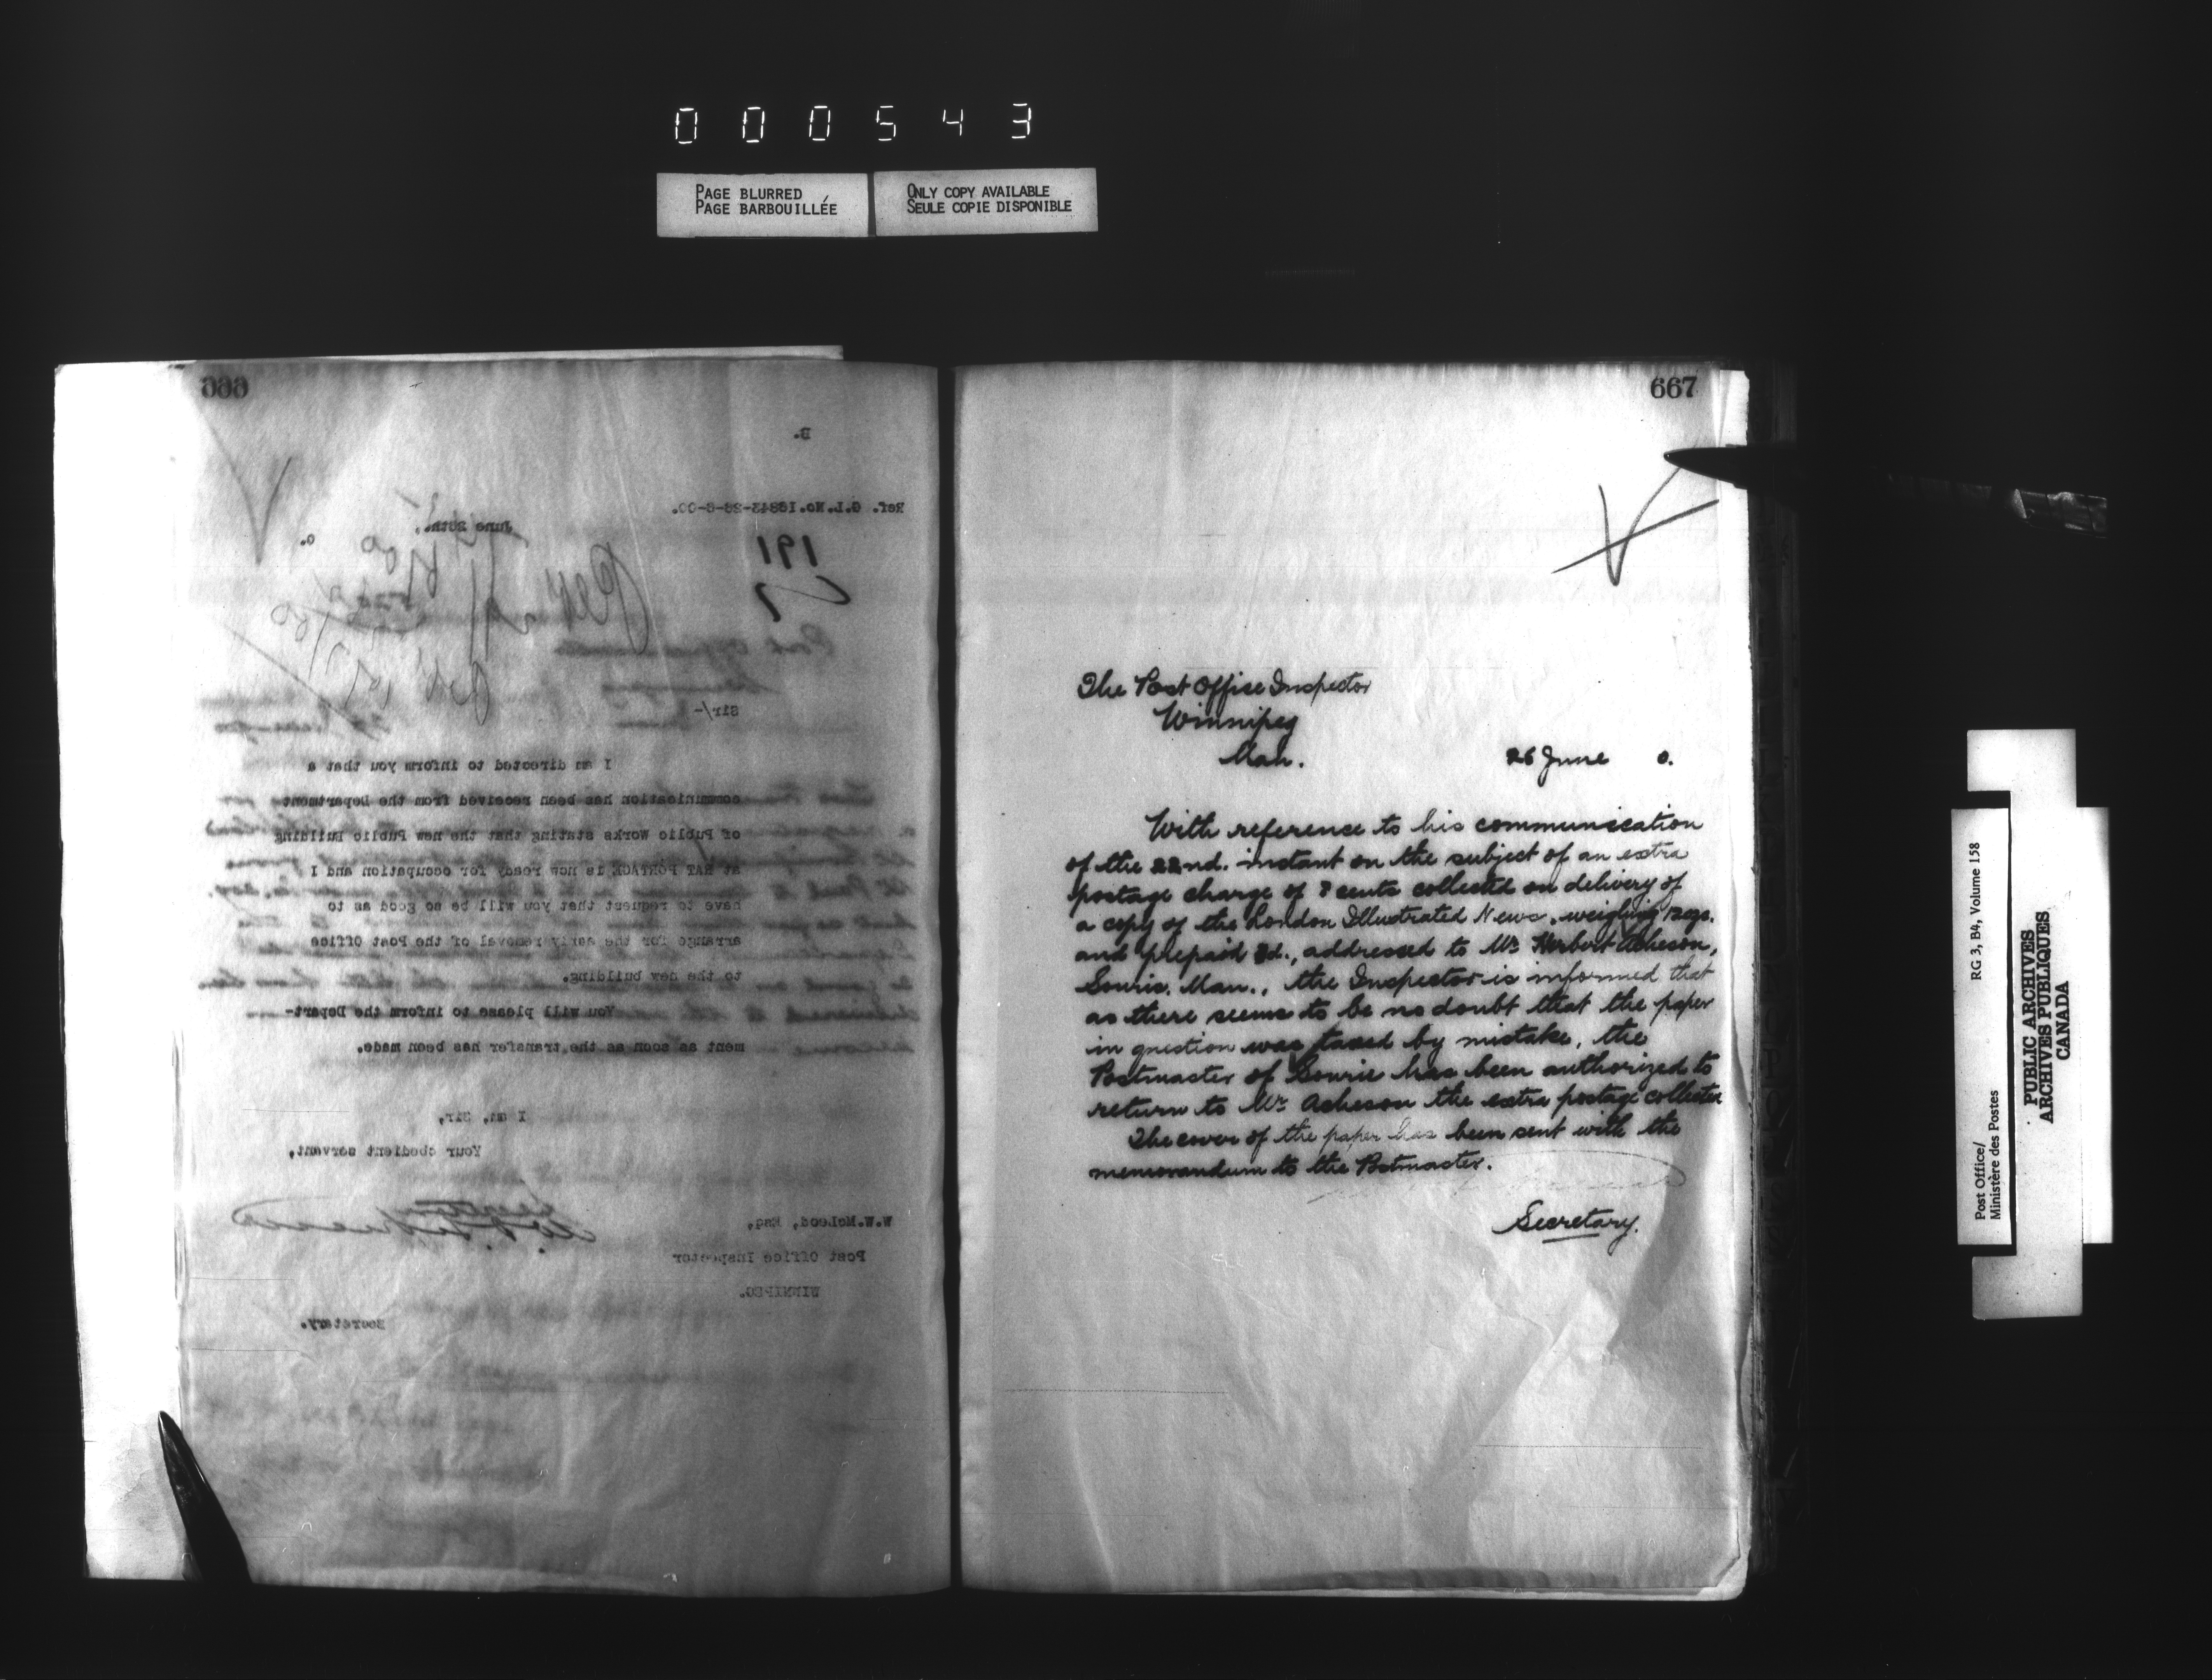 000543
PAGE BLURRED
PAGE BARBOUILLÉE
ONLY COPY AVAILABLE
SEULE COPIE DISPONIBLE
666
B.
Ref. G.I.No.16843-26-6-00.
June 28th, 0.
191
Sir/-
I am directed to inform you that a
communication has been received from the Department
of Public Works stating that the new Public Building
at RAT PORTAGE is now ready for occupation and I
have to request that you will be so good as to
arrange for the early removal of the Post Office
to the new building.
You will please to inform the Depart-
ment as soon as the transfer has been made.
I am, Sir,
Your obedient servant,
W.W.McLeod, Esq,
Post Office Inspector
WINNIPEG.
Secretary.
667
The Post Office Inspector
Winnipeg
Man.
26 June 0.
With reference to his communication
of the 22nd. instant on the subject of an extra
postage charge of 8 cents collected on delivery of
a copy of the London Illustrated News, weighing 12 ozs.
and prepaid 3d., addressed to Mr Herbert Acheson,
Souris, Man., the Inspector is informed that
as there seems to be no doubt that the paper
in question was taxed by mistake, the
Postmaster of Souris has been authorized to
return to Mr Acheson the extra postage collected
The cover of the paper has been sent with the
memorandum to the Postmaster.
Secretary.
Post Office/
Ministère des Postes
RG 3, B4, Volume 158
PUBLIC ARCHIVES
ARCHIVES PUBLIQUES
CANADA